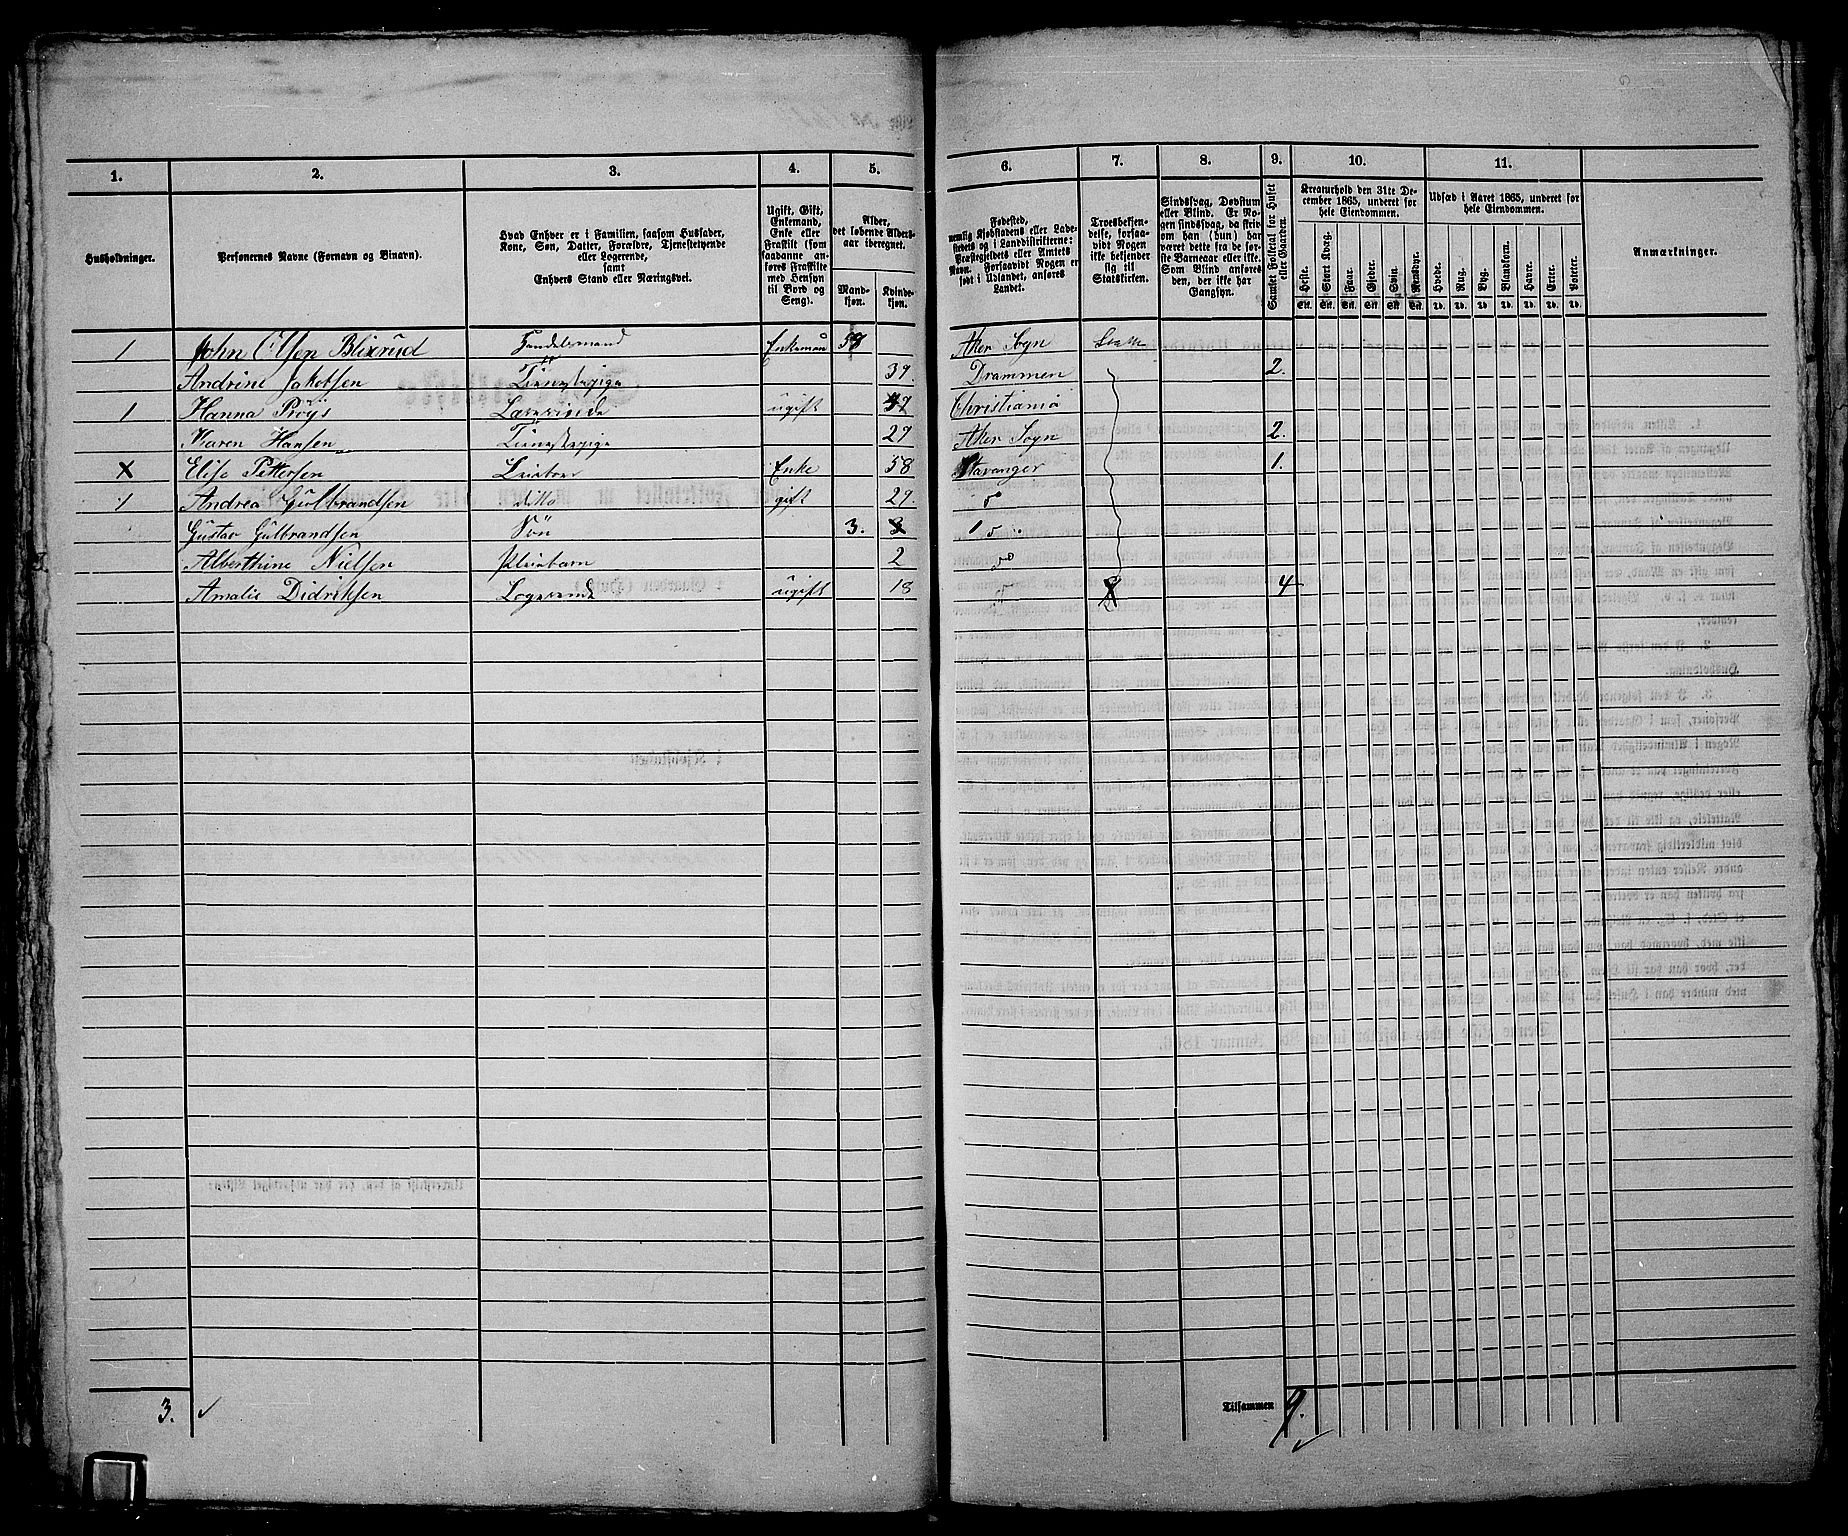 1. 2. 3. 4. 5. 6. 7. 8. 9. 10. 11.
Husholdninger.
Personernes Navne (Fornavn og Binavn).
Hvad Enhver er i Familien, saasom Husfader,
Kone, Søn, Datter, Forældre, Tjenestetyende
eller Logerende,
samt
Enhvers Stand eller Næringsvei.
Ugift, Gift,
Enkemand,
Enke eller
Fraskilt (som
saadanne an-
føres Fraskilte
med Hensyn
til Bord og
Seng).
Alder,
det løbende Alders-
aar iberegnet.
Mand-
kjøn.
Kvinde-
kjøn.
Fødested,
nemlig Kjøbstadens eller Lade-
stedets og i Landdistrikterne:
Præstegjeldets eller Amtets
Navn. Forsaavidt Nogen er
født i Udlandet, anføres
Landet.
Troesbekjen-
delse, forsaa-
vidt Nogen
ikke bekjender
sig til
Statskirken.
Sindssvag, Døvstum
eller Blind. Er No-
gen sindssvag, da skriv
om han (hun) har
været dette fra de før-
ste Barneaar eller ikke.
Som Blind anføres
den, der ikke har
Gangsyn.
Samlet Folketal for Huset
eller Gaarden.
Kreaturhold den 31te De-
cember 1865, underet for
hele Eiendommen.
Heste. Stort Kvæg. Faar. Gjeder. Svin. Rensdyr.
St. St. St. St. St. St.
Udsæd i Aaret 1865, underet for
hele Eiendommen.
Hvede. Rug. Byg. Blandkorn. Havre. Erter. Poteter.
Td. Td. Td. Td. Td. Td. Td.
Anmærkninger.
1 John Olsen Blixrud Handelsmand Enkeman 58 Aker Sogn
Andrine Jakobsen Tienestepige 39. Drammen 2.
1 Hanna Prøys Lærerinde ugift Christiania
Karen Hansen Tienestepige 29 Aker Sogn 2.
X Elise Pettersen Enke 58 Stavanger 1.
1 Andrea Gulbrandsen ditto gift 29.
Gustav Gulbrandsen Søn 3.
Alberthine Nielsen Pleiebarn 2 do
Amalie Didriksen Logerende ugift 18 4
3.
Tilsammen 9.